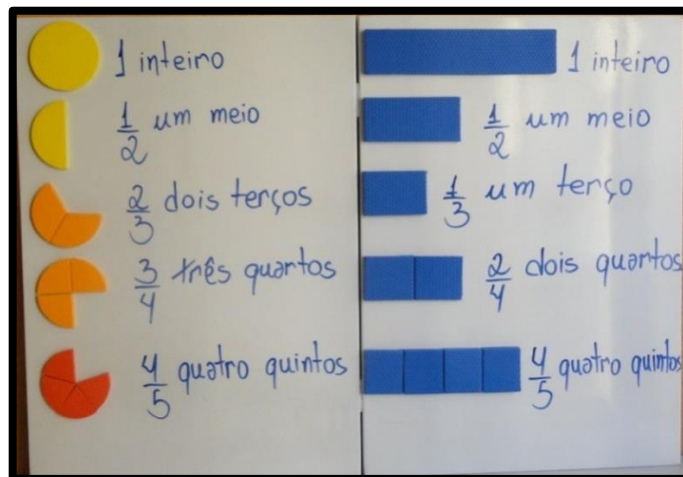 1 inteiro
1/2 um meio
2/3 dois terços
3/4 três quartos
4/5 quatro quintos
1 inteiro
1/2 um meio
1/3 um terço
2/4 dois quartos
4/5 quatro quintos